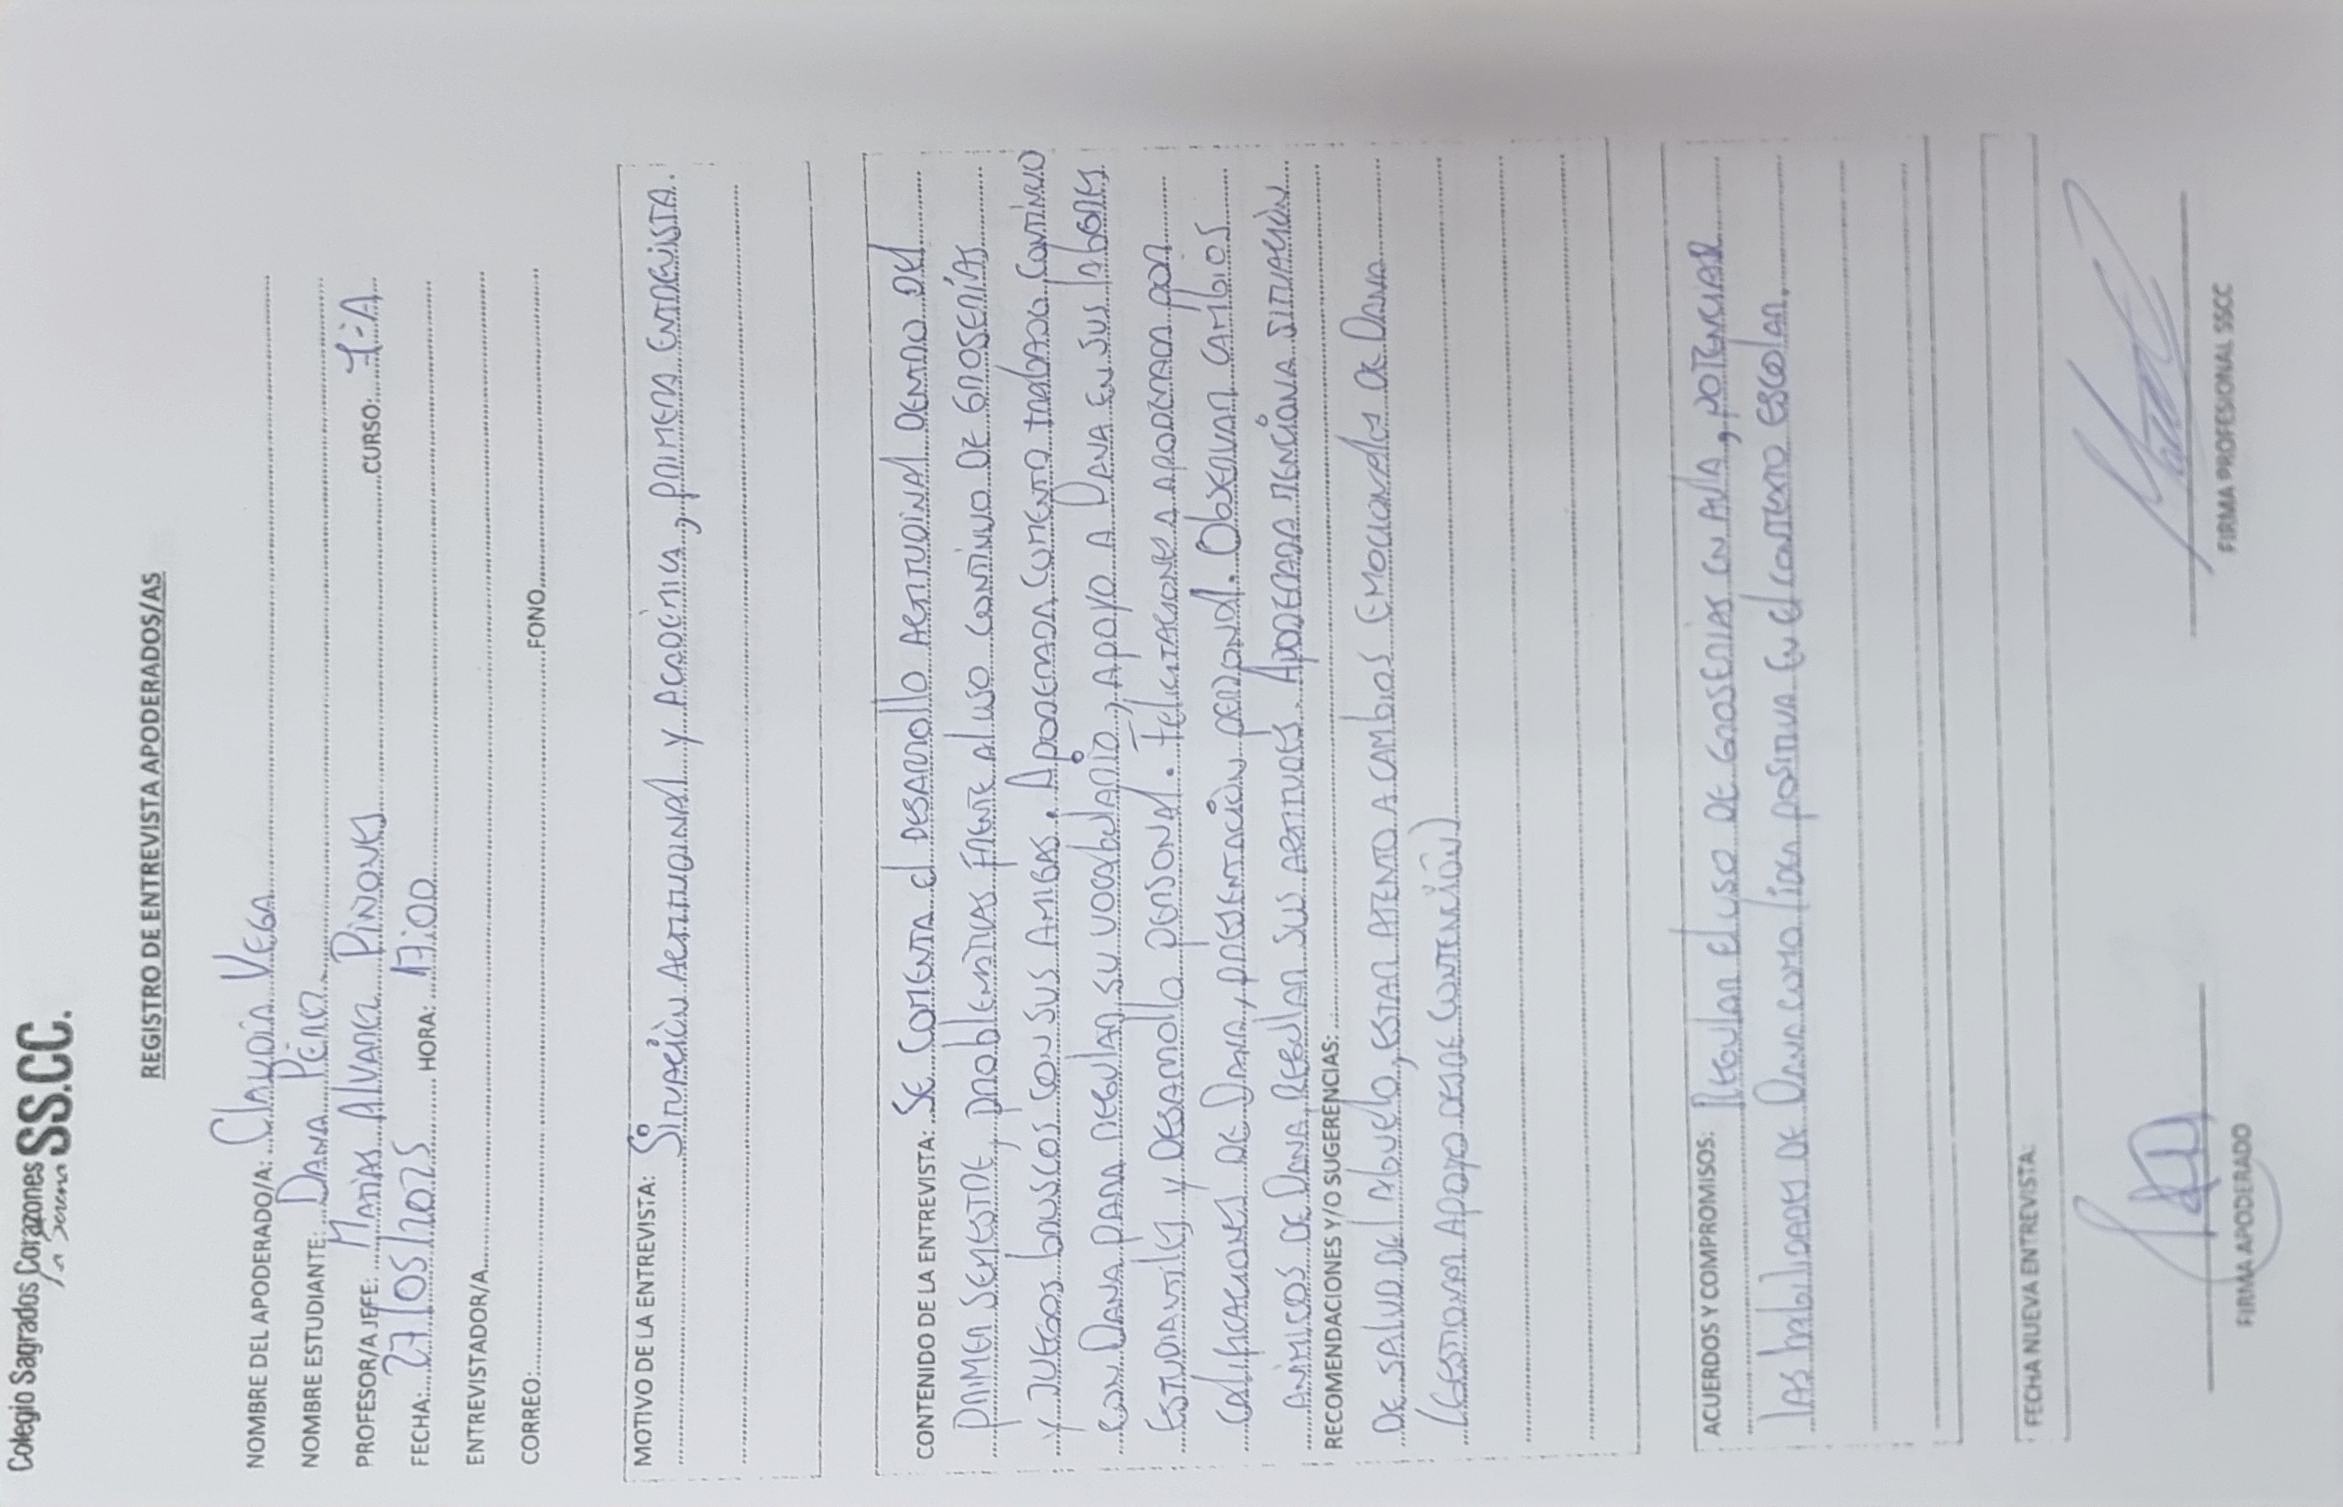 Colegio Sagrados Corazones SS.CC.
La Serena
REGISTRO DE ENTREVISTA APODERADOS/AS
NOMBRE DEL APODERADO/A: Claudia Vega
NOMBRE ESTUDIANTE: Dana Peña
PROFESOR/A JEFE: Matias Alvarez Piñones CURSO: 1°A
FECHA: 27/05/2025 HORA: 17:00
ENTREVISTADOR/A
CORREO: FONO
MOTIVO DE LA ENTREVISTA: Situación actitudinal y académica, primera entrevista.
CONTENIDO DE LA ENTREVISTA: Se comenta el desarrollo actitudinal dentro del
primer semestre, problemáticas frente al uso continuo de groserías
y juegos bruscos con sus amigas. Apoderada comenta trabajo continuo
con Dana para regular su vocabulario, apoyo a Dana en sus labores
estudiantiles y desarrollo personal. Felicitaciones a apoderada por
calificaciones de Dana y presentación personal. Observar cambios
anímicos de Dana, regular sus actitudes. Apoderada menciona situación
RECOMENDACIONES Y/O SUGERENCIAS:
de salud del abuelo, estar atento a cambios emocionales de Dana
(gestionar apoyo desde contención)
ACUERDOS Y COMPROMISOS: Regular el uso de groserías en aula, potenciar
las habilidades de Dana como líder positiva en el contexto escolar.
FECHA NUEVA ENTREVISTA:
FIRMA APODERADO FIRMA PROFESIONAL SSCC